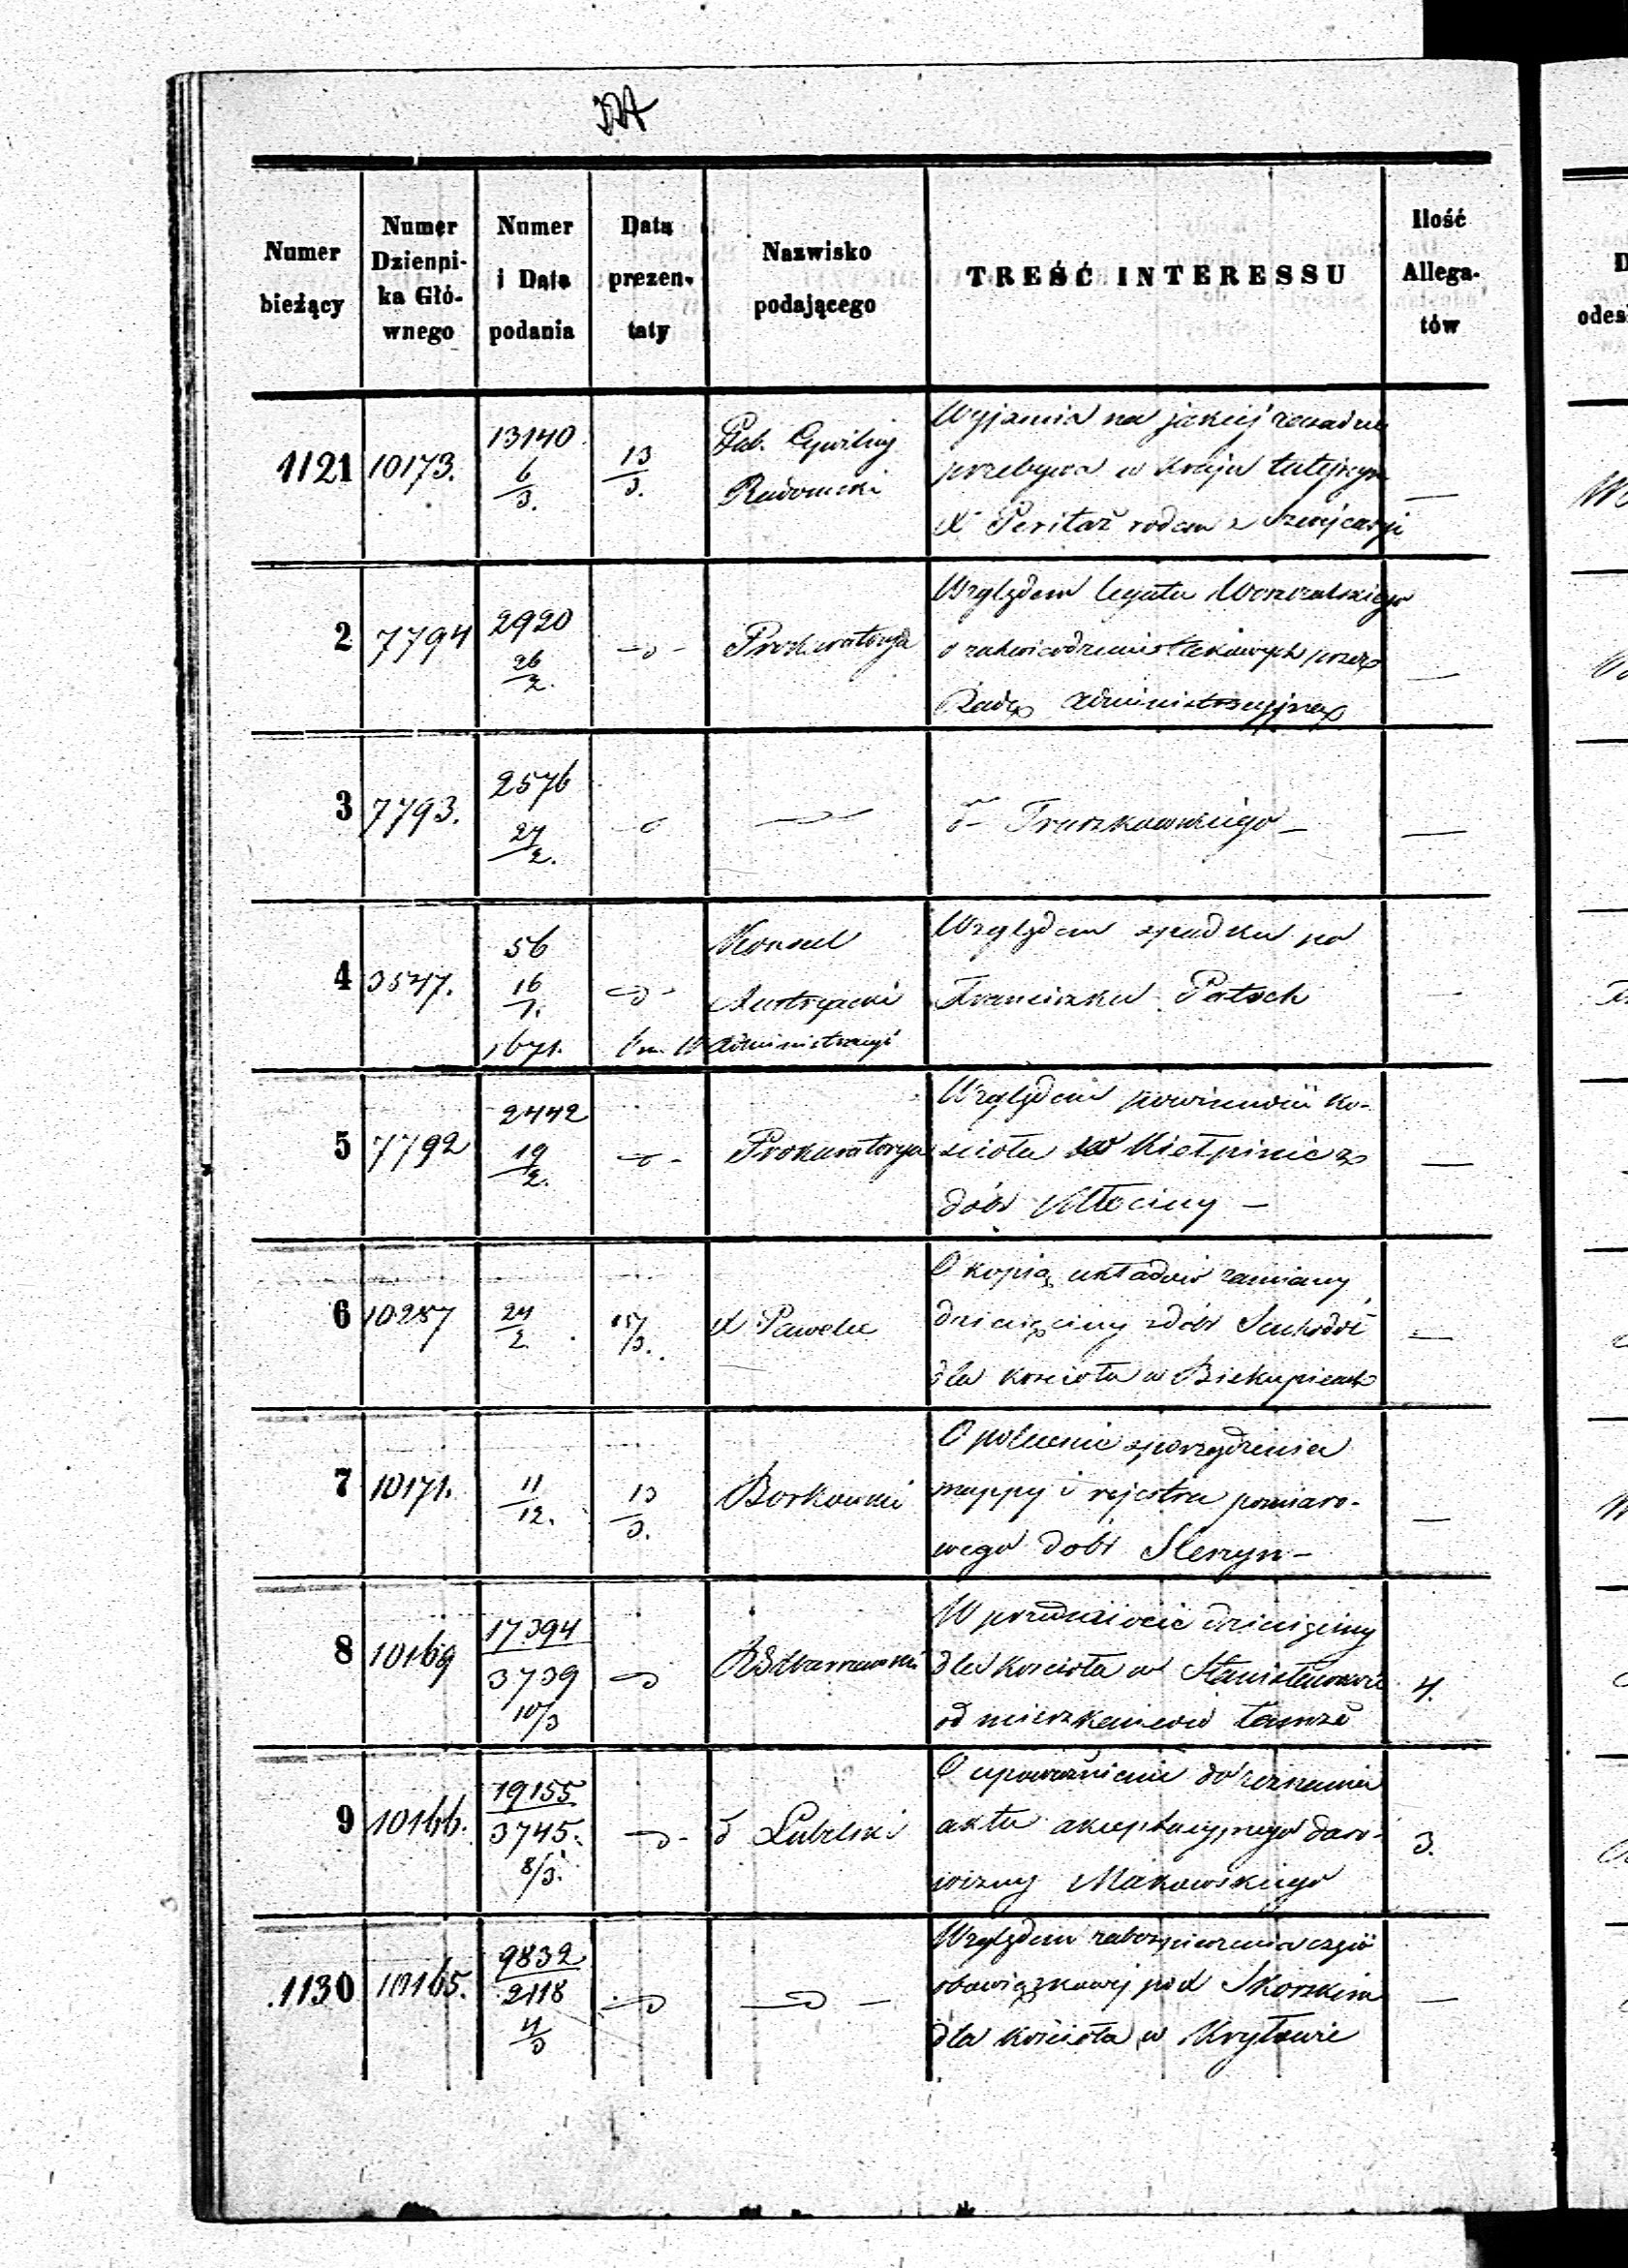 Numer bieżący | Numer Dziennika Głównego | Numer i Data podania | Data prezentaty | Nazwisko podającego | TREŚĆ INTERESSU | Ilość Allegatów
1121 | 10173. | 13140 6/3. | 13/3. | Gub. Cywilny Radomski | Wyjaśnia na jakiej zasadzie
przebywa w Kraju tutejszym
X Peritaż rodem z Szwejcaryi | —
2 | 7794 | 2920 26/2. | -o- | Prokuratorya | Względem legatu
o zatwierdzenie takowych przez
Radę Administracyjną | —
3 | 7793. | 2576 27/2. | -o | — | d- Fraszkowskiego — | —
4 | 3547. | 56 16/1. 1671. | -o- | Konsul Austryacki Administracyi | Względem spadku po
Franciszku Potoch | —
5 | 7792 | 2442 19/2. | -o- | Prokuratorya | Względem powinności ko-
scioła w Kiełpinie z
dóbr Młociny — | —
6 | 10257 | 24/2. | 15/3. | X Pawelec | O kopią układów zamiany
dziesięciny z dóbr Suchodół
dla kościoła w Biskupicach | —
7 | 10171. | 11/12. | 13/3. | Borkowski | O polecenie sporządzenia
mappy i rejestru pomiaro-
wego dóbr Sleszyn — | —
8 | 10169 | 17394 3739 10/3 | -o | RG Warszawski | W przedmiocie dziesięciny
dla kościoła w Stanisławowie
od mieszkańców tamże | 4.
9 | 10166. | 19155 3745. 8/3. | -o- | d Lubelski | O upoważnienie do zeznania
aktu akceptacyjnego daro-
wizny Makowskiego | 3.
1130 | 10165. | 9832 2118 4/3 | -o | -o — | Względem zabezpieczenia części
obowiązkowej pod
dla kościoła w Kryłowie | —
odes